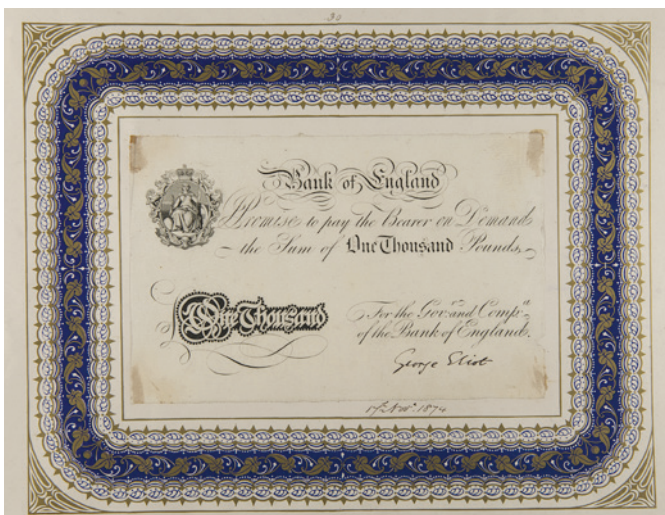 30
Bank of England
Promise to pay the Bearer on Demand
the Sum of One Thousand Pounds
£ One Thousand
For the Gov.r and Comp.a
of the Bank of England.
George Eliot
17 Nov. 1874